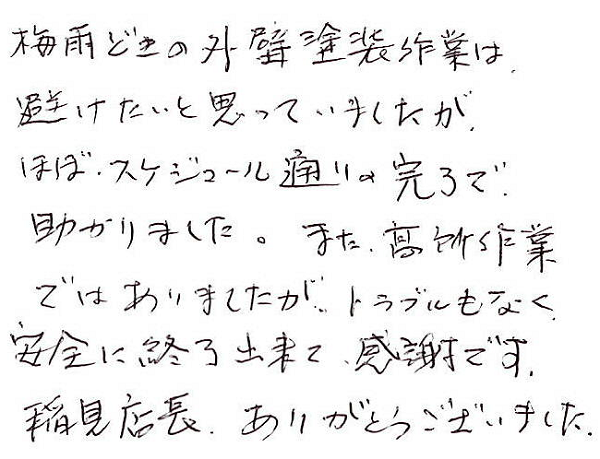 梅雨どきの外壁塗装作業は、
避けたいと思っていましたが、
ほぼ、スケジュール通りの完了で、
助かりました。また、高所作業
ではありましたが、トラブルもなく、
安全に終了出来て、感謝です。
稲見店長、ありがとうございました。